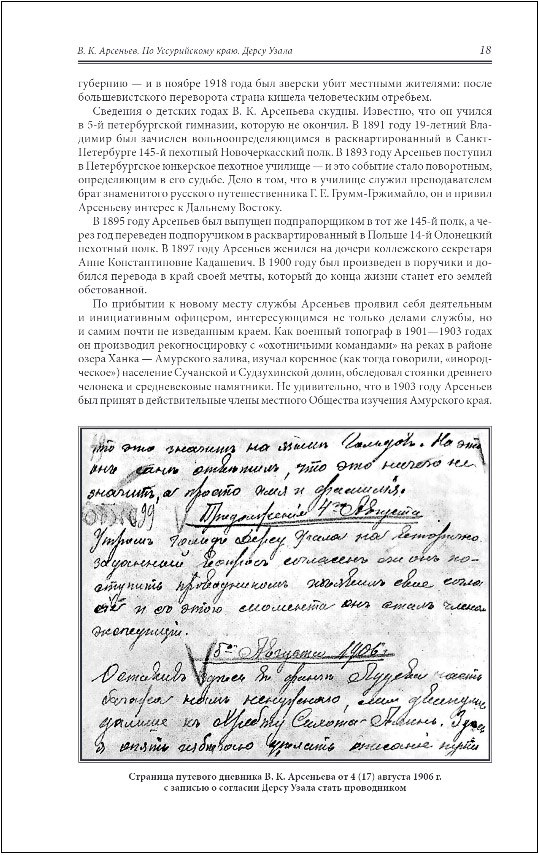 В. К. Арсеньев. По Уссурийскому краю. Дерсу Узала 18
губернию — и в ноябре 1918 года был зверски убит местными жителями: после
большевистского переворота страна кишела человеческим отребьем.
Сведения о детских годах В. К. Арсеньева скудны. Известно, что он учился
в 5-й петербургской гимназии, которую не окончил. В 1891 году 19-летний Вла-
димир был зачислен вольноопределяющимся в расквартированный в Санкт-
Петербурге 145-й пехотный Новочеркасский полк. В 1893 году Арсеньев поступил
в Петербургское юнкерское пехотное училище — и это событие стало поворотным,
определяющим в его судьбе. Дело в том, что в училище служил преподавателем
брат знаменитого русского путешественника Г. Е. Грумм-Гржимайло, он и привил
Арсеньеву интерес к Дальнему Востоку.
В 1895 году Арсеньев был выпущен подпрапорщиком в тот же 145-й полк, а че-
рез год переведен подпоручиком в расквартированный в Польше 14-й Олонецкий
пехотный полк. В 1897 году Арсеньев женился на дочери коллежского секретаря
Анне Константиновне Кадашевич. В 1900 году был произведен в поручики и до-
бился перевода в край своей мечты, который до конца жизни станет его землей
обетованной.
По прибытии к новому месту службы Арсеньев проявил себя деятельным
и инициативным офицером, интересующимся не только делами службы, но
и самим почти не изведанным краем. Как военный топограф в 1901—1903 годах
он производил рекогносцировку с «охотничьими командами» на реках в районе
озера Ханка — Амурского залива, изучал коренное (как тогда говорили, «инород-
ческое») население Сучанской и Судзухинской долин, обследовал стоянки древнего
человека и средневековые памятники. Не удивительно, что в 1903 году Арсеньев
был принят в действительные члены местного Общества изучения Амурского края.
что это значитъ на языкѣ Гольдовъ. На это
онъ самъ отвѣтилъ, что это ничего не
значитъ, а просто имя и фамилія.
Продолженіе 4го Августа
Утромъ гольдъ Дерсу Узала на вторично
заданный вопросъ согласенъ ли онъ по-
ступить проводникомъ изъявилъ свое согла
сіе и съ этого момента онъ сталъ членъ
экспедиціи.
5го Августа 1906 г.
Оставивъ здѣсь въ часть
багажа намъ ненужнаго, мы двинулись
дальше къ хребту Сихотэ-Алинь. Здѣсь
я опять описаніе
Страница путевого дневника В. К. Арсеньева от 4 (17) августа 1906 г.
с записью о согласии Дерсу Узала стать проводником